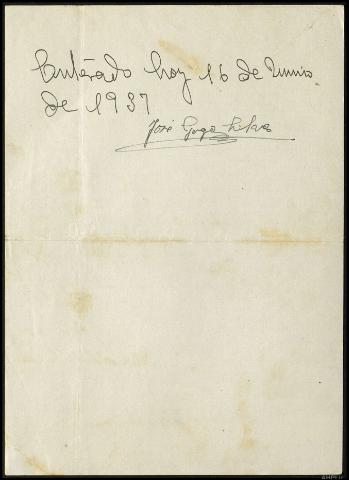 Enterado hoy 16 de Junio
de 1937
José Gago Silva